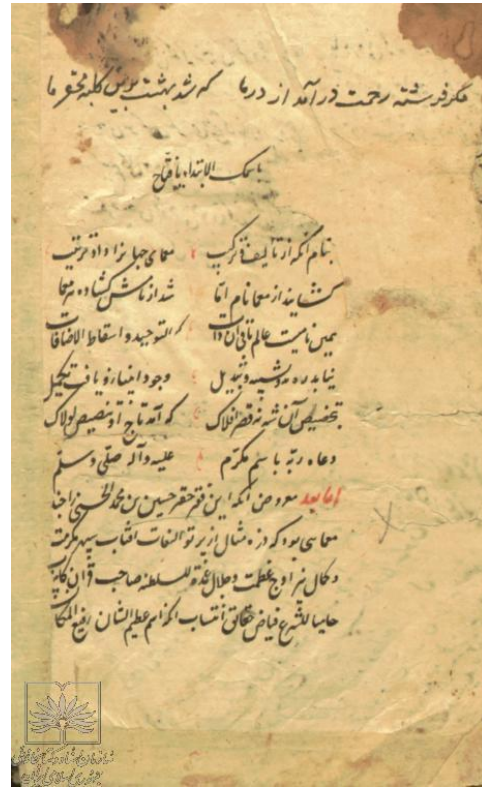 مگر فرشته رحمت درآمد از در ما که شد بهشت برین کلبه محقر ما
باسمک الابتداء یا فتاح
بنام آنکه از تألیف و ترکیب معمای جهانرا داد ترتیب
گشایند از معما نام اما شد از نامش گشاده هر معما
همین نامیست عالم ذات التوحید و اسقاط الاضافات
نیابد ره بدو تشبیه و تبدیل وجود انبیا زو یافت تکمیل
بتخصیص آن شه نه قصر افلاک که آمد تاج او تنصیص لولاک
دعاه ربّه باسم مکرّم علیه و آله صلّی و سلّم
اما بعد معروض آنکه این فقیر حقیر حسین بن محمد الحسنی
معمایی بود که ذره مثال از پرتو التفات آفتاب سپهر مکرمت
و کمال نیر اوج عظمت و جلال للسلطنه صاحب قران
حامیا للشرع فیاض حقایق انتساب عظیم الشان رفیع المکان
سازمان اسناد و کتابخانه ملی
جمهوری اسلامی ایران